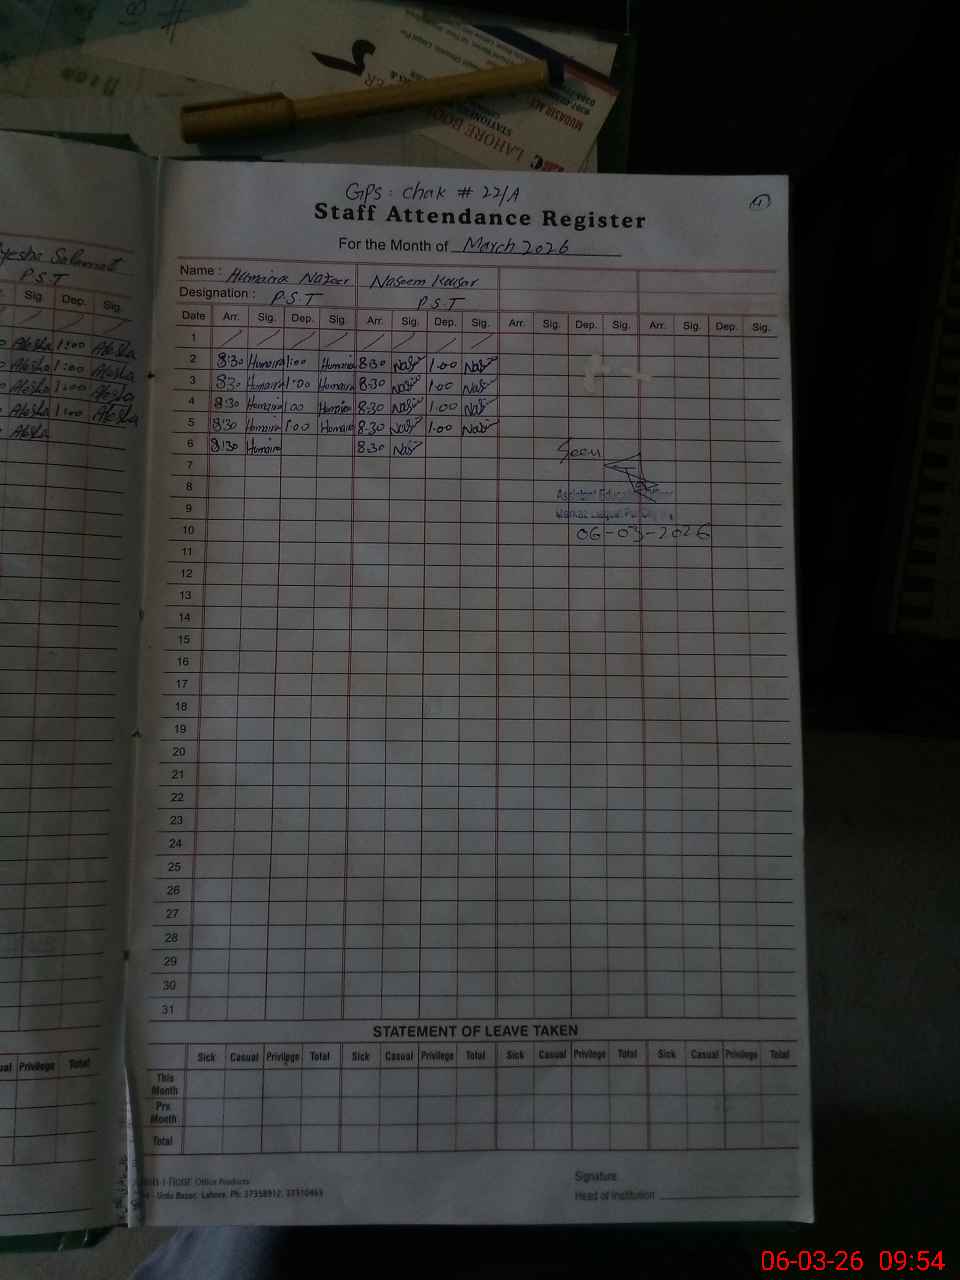 LAHORE BOO
STATION
MUDASIR ALI
GPS: chak # 22/A
4
Staff Attendance Register
For the Month of March 2026
Name: Humaira Nazeer Naseem Kousar
Designation: P.S.T P.S.T
Date Arr. Sig. Dep. Sig. Arr. Sig. Dep. Sig. Arr. Sig. Dep. Sig. Arr. Sig. Dep. Sig.
1 / / / / / / / /
2 8:30 Humaira 1:00 Humaira 8:30 Nasir 1.00 Nasir
3 8:30 Humaira 1:00 Humaira 8.30 Nasir 1.00 Nasir
4 8:30 Humaira 1:00 Humaira 8.30 Nasir 1.00 Nasir
5 8:30 Humaira 1:00 Humaira 8.30 Nasir 1.00 Nasir
6 8:30 Humaira 8.30 Nasir
Seen
7
8
Assistant Education Officer
9
10
06-03-2026
11
12
13
14
15
16
17
18
19
20
21
22
23
24
25
26
27
28
29
30
31
STATEMENT OF LEAVE TAKEN
Sick Casual Privilege Total Sick Casual Privilege Total Sick Casual Privilege Total Sick Casual Privilege Total
This Month
Pre. Month
Total
Office Products
Urdu Bazar, Lahore. Ph: 37358912, 37310463
Signature
Head of Institution
Ayesha Salamat
P.S.T
Sig. Dep. Sig.
Aiesha 1:00 Aiesha
Aiesha 1:00 Aiesha
Aiesha 1:00 Aiesha
Aiesha 1:00 Aiesha
Aiesha
Privilege Total
06-03-26 09:54